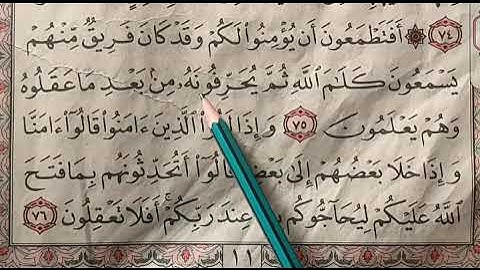 ٧٤ ۞ أَفَتَطْمَعُونَ أَن يُؤْمِنُوا۟ لَكُمْ وَقَدْ كَانَ فَرِيقٌ مِّنْهُمْ
يَسْمَعُونَ كَلَـٰمَ ٱللَّهِ ثُمَّ يُحَرِّفُونَهُۥ مِنۢ بَعْدِ مَا عَقَلُوهُ
وَهُمْ يَعْلَمُونَ ٧٥ وَإِذَا ٱلَّذِينَ ءَامَنُوا۟ قَالُوٓا۟ ءَامَنَّا
وَإِذَا خَلَا بَعْضُهُمْ إِلَىٰ أَتُحَدِّثُونَهُم بِمَا فَتَحَ
ٱللَّهُ عَلَيْكُمْ لِيُحَآجُّوكُم عِندَ رَبِّكُمْ ۚ أَفَلَا تَعْقِلُونَ ٧٦
١١